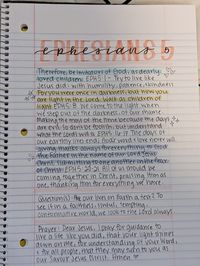 ephesians 5
Therefore, be imitators of God, as dearly
loved children. EPH 5:1- Try to live like
Jesus did: with humility, patience, kindness
For you were once in darkness, but now you
are light in the Lord. Walk as children of
light. EPH 5:8. We come to the light when
we step out of the darkness, of our shame
Making the most of the time because the days
are evil. So don't be foolish, but understand
what the Lord's will is. EPH 5:16-17 The days of
our earthly life end, God and His love never will
giving thanks always for everything to God
the Father in the name of our Lord Jesus
Christ, submitting to one another in the fear
of Christ. EPH 5:20-21. All of us should be
coming together in Christ, praying as
one, thanking Him for everything we have.
Question: How can we live in faith & not to
see it in a faithless, sinful, tempting,
conformative world, we look to the Lord always
Prayer: Dear Jesus, I pray for guidance to
live a life like you did, that your light shines
down on me, for understanding of your Word,
& for all people, that they may turn to you as
our Savior Jesus Christ. Amen.